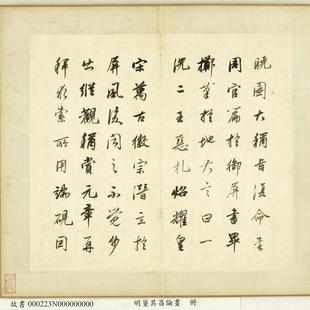 曉圖大稱旨復命書
周官篇於御屏書畢
擲筆於地大言曰一
洗二王惡札照耀皇
宋萬古徽宗潛立於
屏風後聞之不覺步
出縱觀稱賞元章再
拜求索所用端硯因
故書 000223N000000000 明董其昌論畫 冊